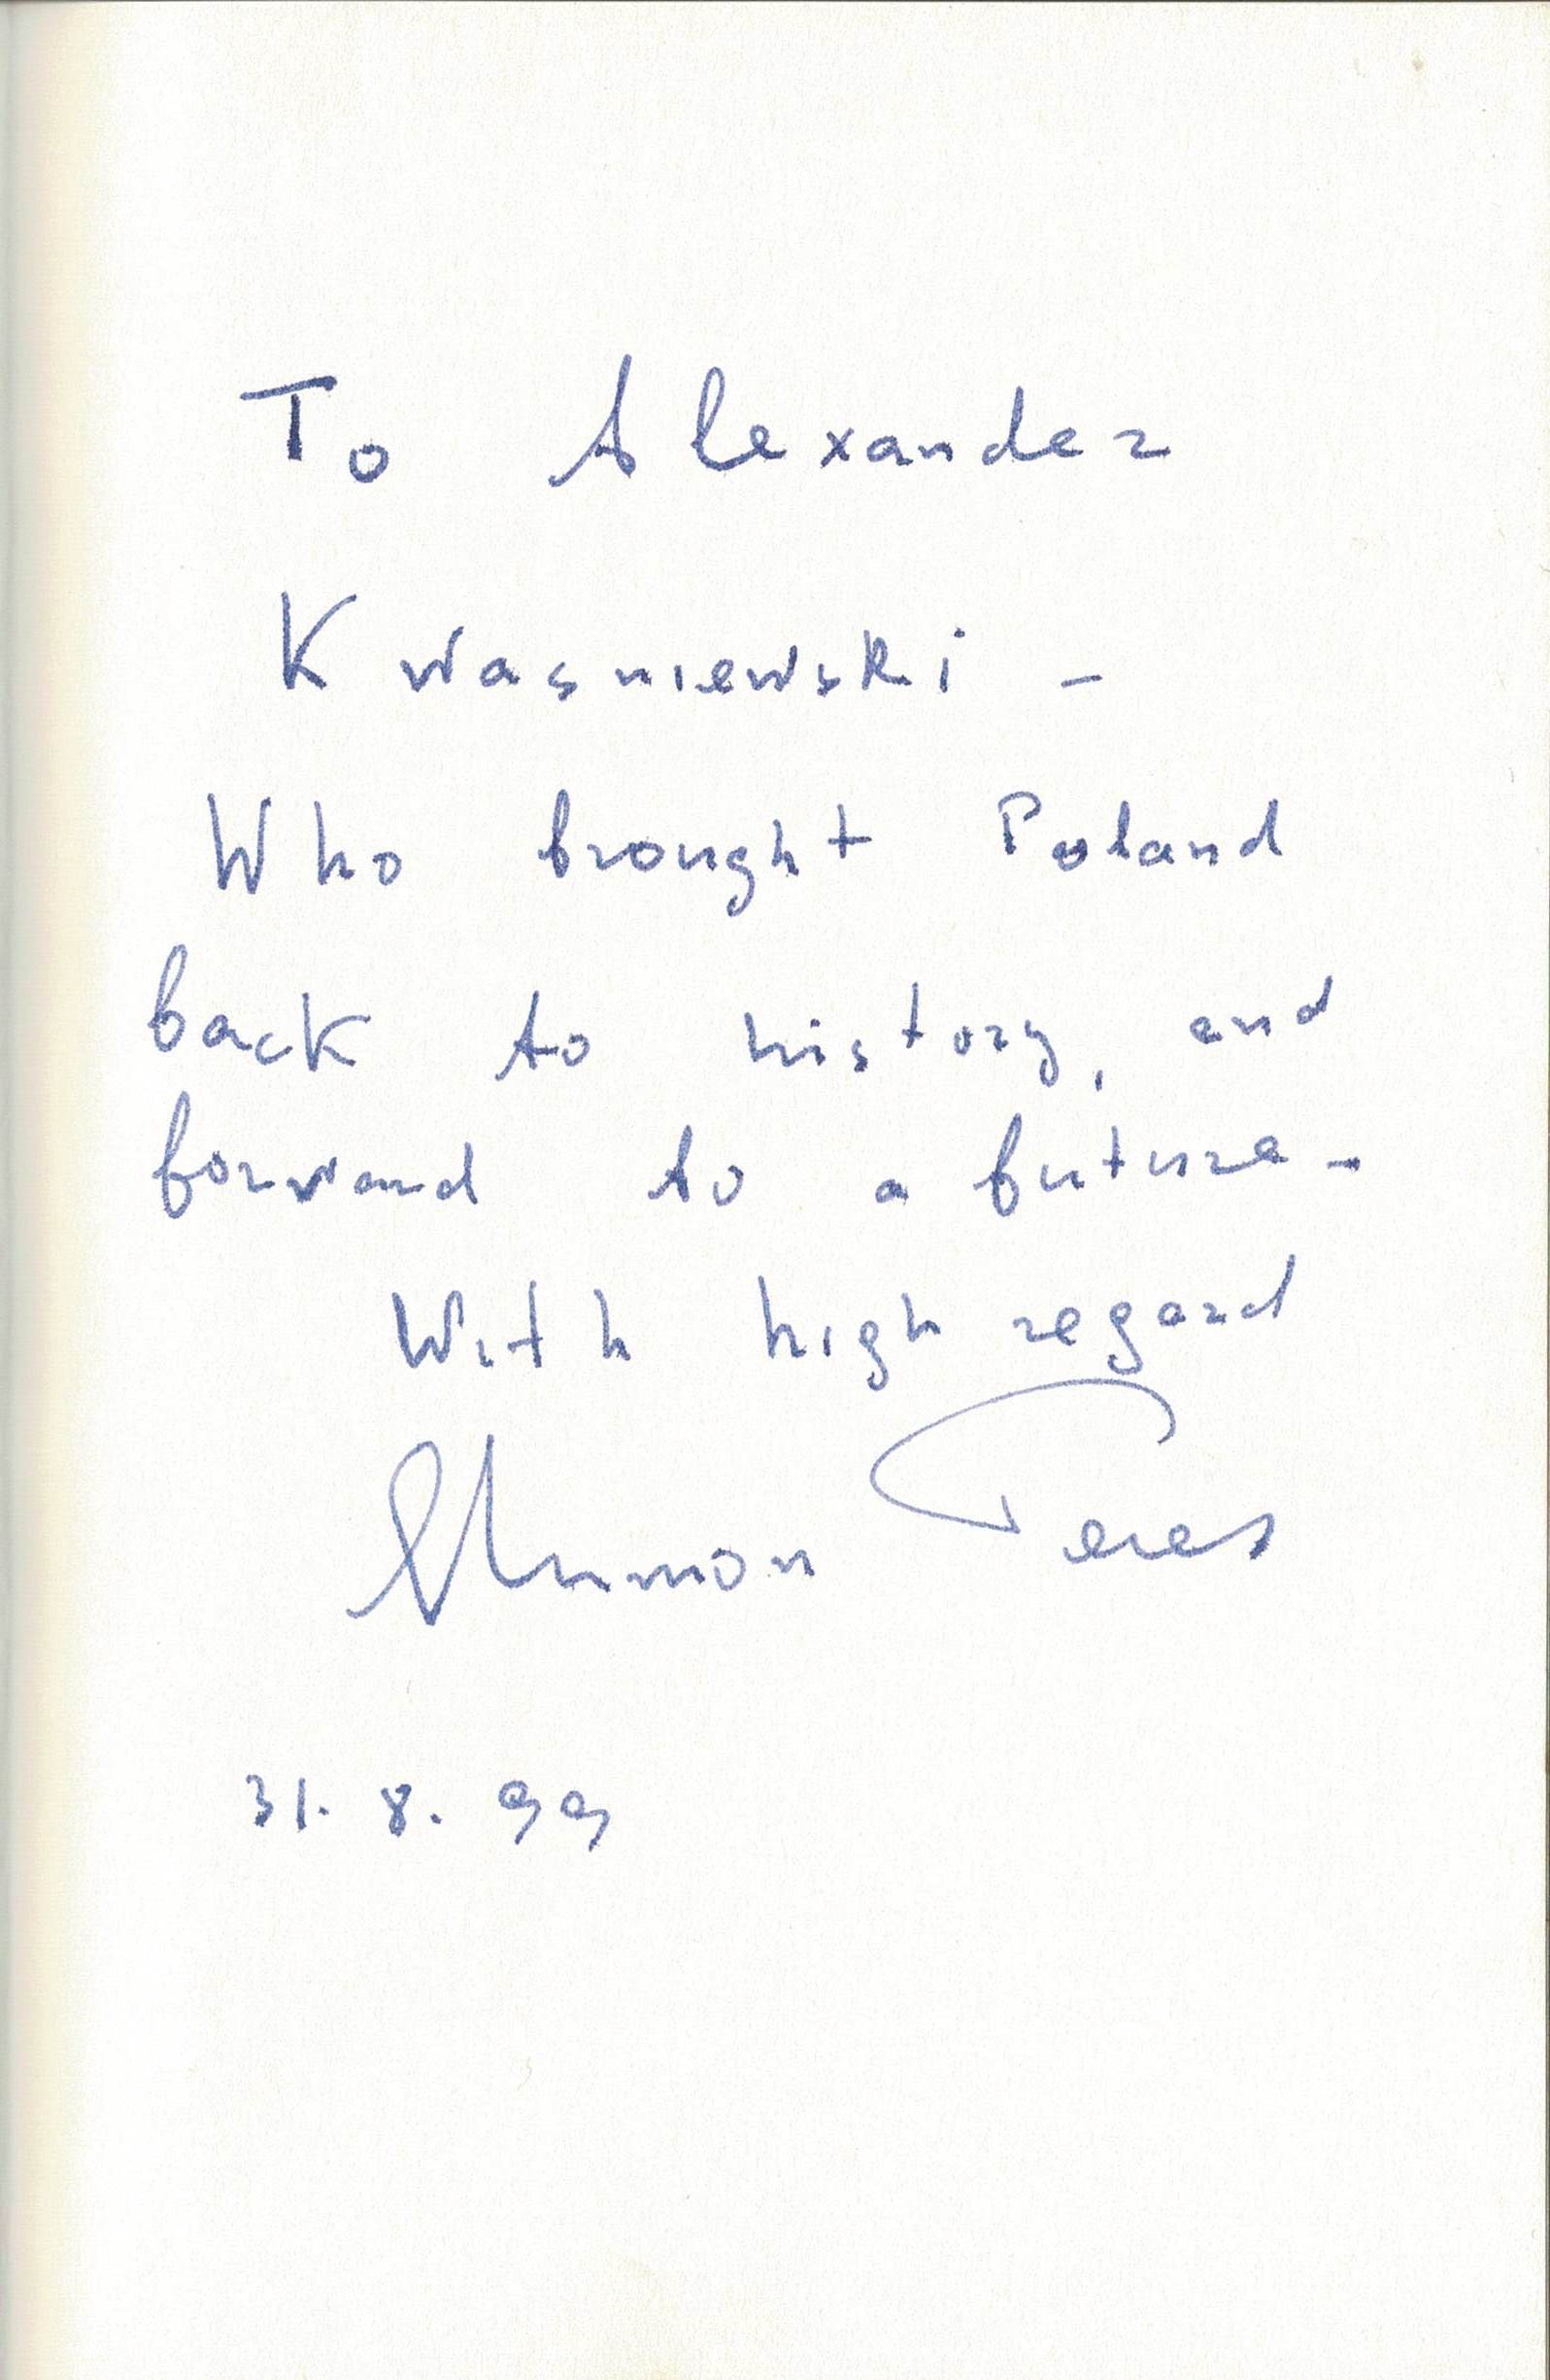 To Alexander
Kwasniewski -
Who brought Poland
back to history, and
forward to a future -
With high regard
Shimon Peres
31. 8. 99